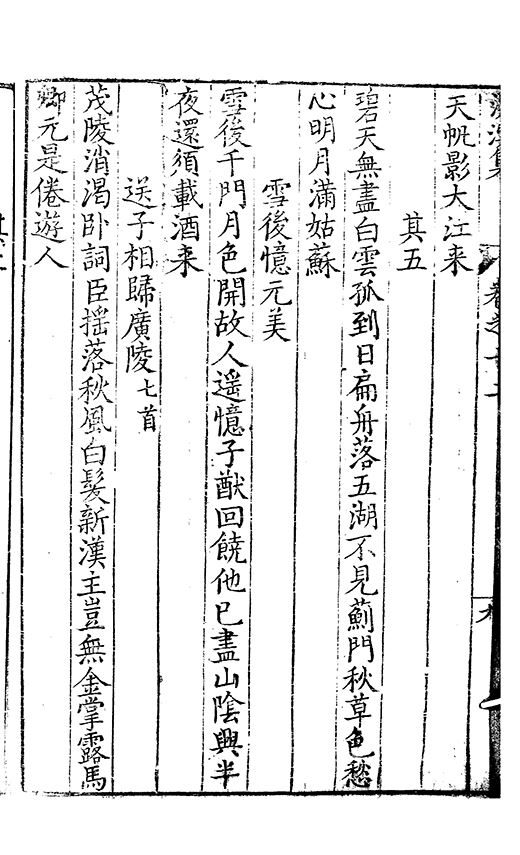 天帆影大江来
其五
碧天無盡白雲孤到日扁舟落五湖不見薊門秋草色愁
心明月滿姑蘇
雪後憶元美
雪後千門月色開故人遥憶子猷回饒他已盡山陰興半
夜還須載酒来
送子相歸廣陵七首
茂陵消渴卧詞臣揺落秋風白髪新漢主豈無金掌露馬
卿元是倦遊人